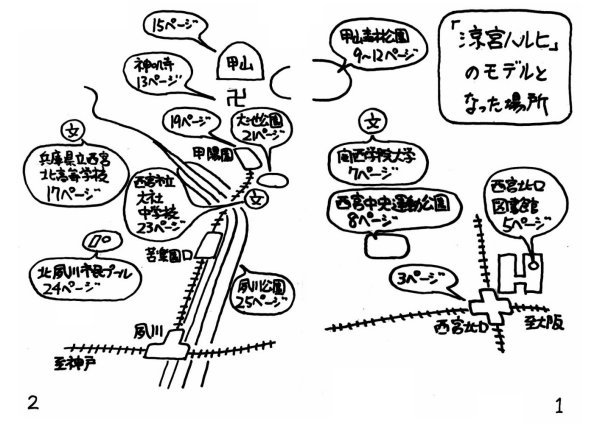 「涼宮ハルヒ」
のモデルと
なった場所
甲山森林公園
9～12ページ
文
関西学院大学
7ページ
西宮中央運動公園
8ページ
西宮北口
図書館
5ページ
3ページ
西宮北口
至大阪
1
15ページ
甲山
神呪寺
13ページ
卍
19ページ
甲陽園
大池公園
21ページ
文
兵庫県立西宮
北高等学校
17ページ
西宮市立
大社
中学校
23ページ
文
北夙川市民プール
24ページ
苦楽園口
夙川公園
25ページ
夙川
至神戸
2